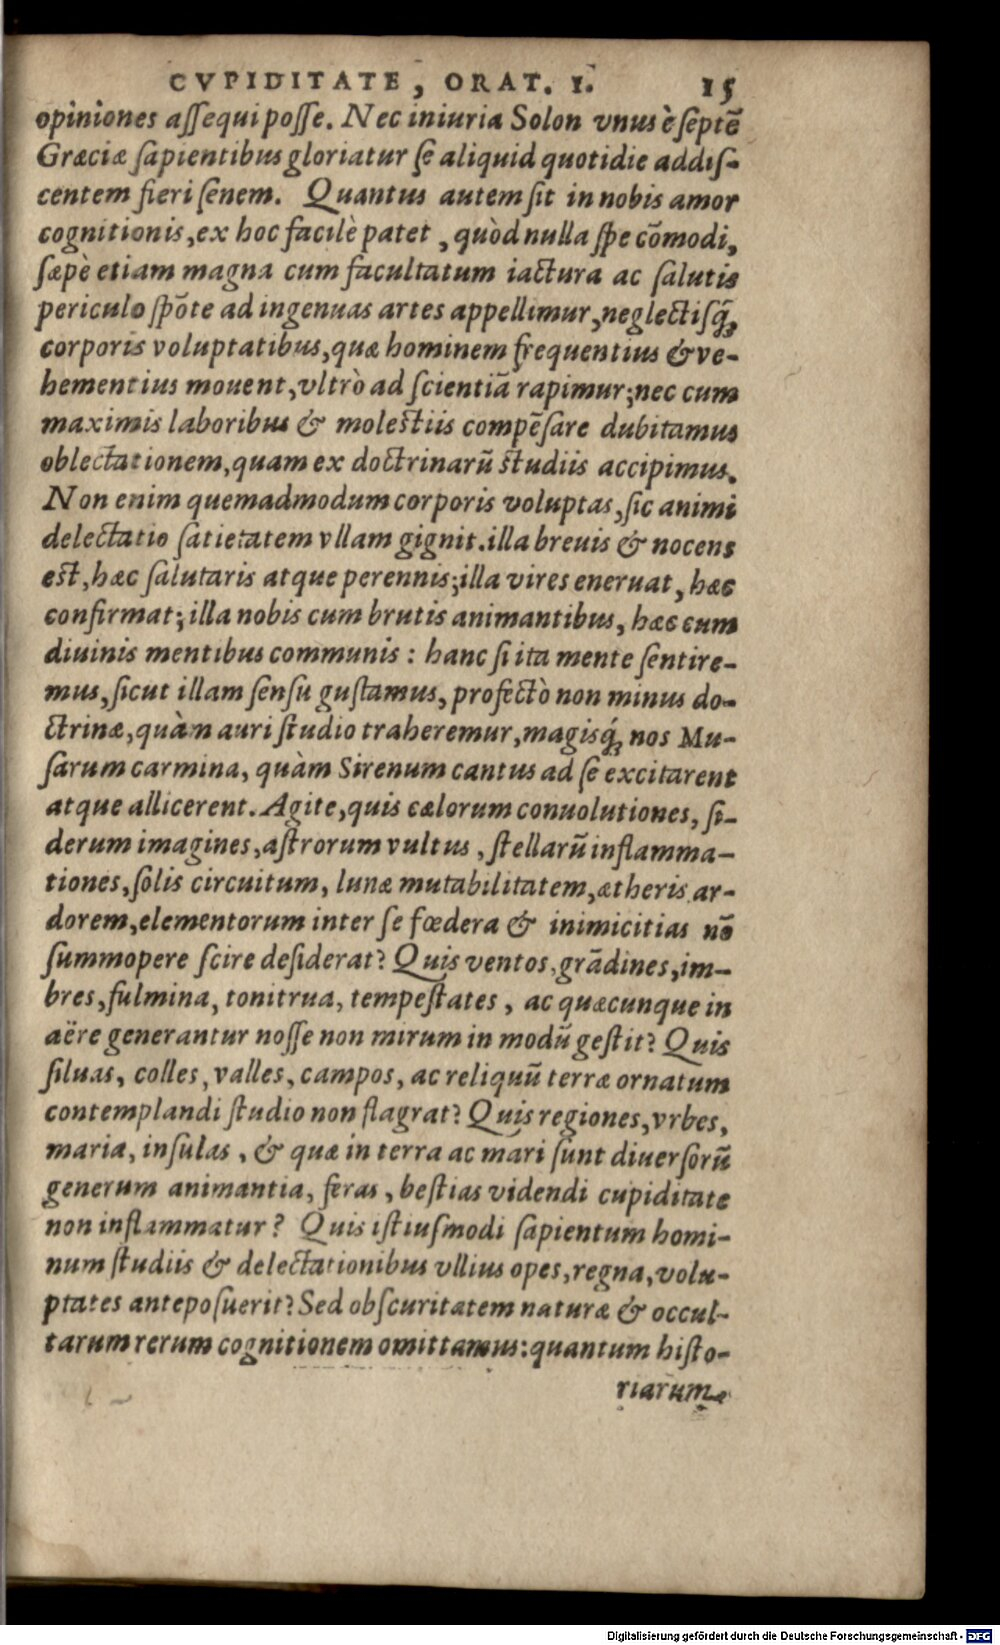 CVPIDITATE, ORAT. I. 15
opiniones aſſequi poſſe. Nec iniuria Solon vnus è ſeptē
Græciæ ſapientibus gloriatur ſe aliquid quotidie addiſ-
centem fieri ſenem. Quantus autem ſit in nobis amor
cognitionis, ex hoc facilè patet, quòd nulla ſpe cōmodi,
ſæpè etiam magna cum facultatum iactura ac ſalutis
periculo ſpōte ad ingenuas artes appellimur, neglectiſq́;
corporis voluptatibus, quæ hominem frequentius & ve-
hementius mouent, vltrò ad ſcientiā rapimur; nec cum
maximis laboribus & moleſtiis compēſare dubitamus
oblectationem, quam ex doctrinarū ſtudiis accipimus.
Non enim quemadmodum corporis voluptas, ſic animi
delectatio ſatietatem vllam gignit. illa breuis & nocens
eſt, hæc ſalutaris atque perennis; illa vires eneruat, hæc
confirmat; illa nobis cum brutis animantibus, hæc cum
diuinis mentibus communis: hanc ſi ita mente ſentire-
mus, ſicut illam ſenſu guſtamus, profectò non minus do-
ctrinæ, quàm auri ſtudio traheremur, magisq́; nos Mu-
ſarum carmina, quàm Sirenum cantus ad ſe excitarent
atque allicerent. Agite, quis cælorum conuolutiones, ſi-
derum imagines, aſtrorum vultus, ſtellarū inflamma-
tiones, ſolis circuitum, lunæ mutabilitatem, ætheris ar-
dorem, elementorum inter ſe fœdera & inimicitias nō
ſummopere ſcire deſiderat? Quis ventos, grādines, im-
bres, fulmina, tonitrua, tempeſtates, ac quæcunque in
aëre generantur noſſe non mirum in modū geſtit? Quis
ſiluas, colles, valles, campos, ac reliquū terræ ornatum
contemplandi ſtudio non flagrat? Quis regiones, vrbes,
maria, inſulas, & quæ in terra ac mari ſunt diuerſorū
generum animantia, feras, beſtias videndi cupiditate
non inflammatur? Quis iſtiuſmodi ſapientum homi-
num ſtudiis & delectationibus vllius opes, regna, volu-
ptates antepoſuerit? Sed obſcuritatem naturæ & occul-
tarum rerum cognitionem omittamus: quantum hiſto-
riarum
Digitalisierung gefördert durch die Deutsche Forschungsgemeinschaft - DFG